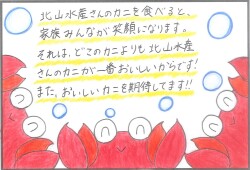 北山水産さんのカニを食べると、
家族みんなが笑顔になります。
それは、どこのカニよりも北山水産
さんのカニが一番おいしいからです!
また、おいしいカニを期待してます!!